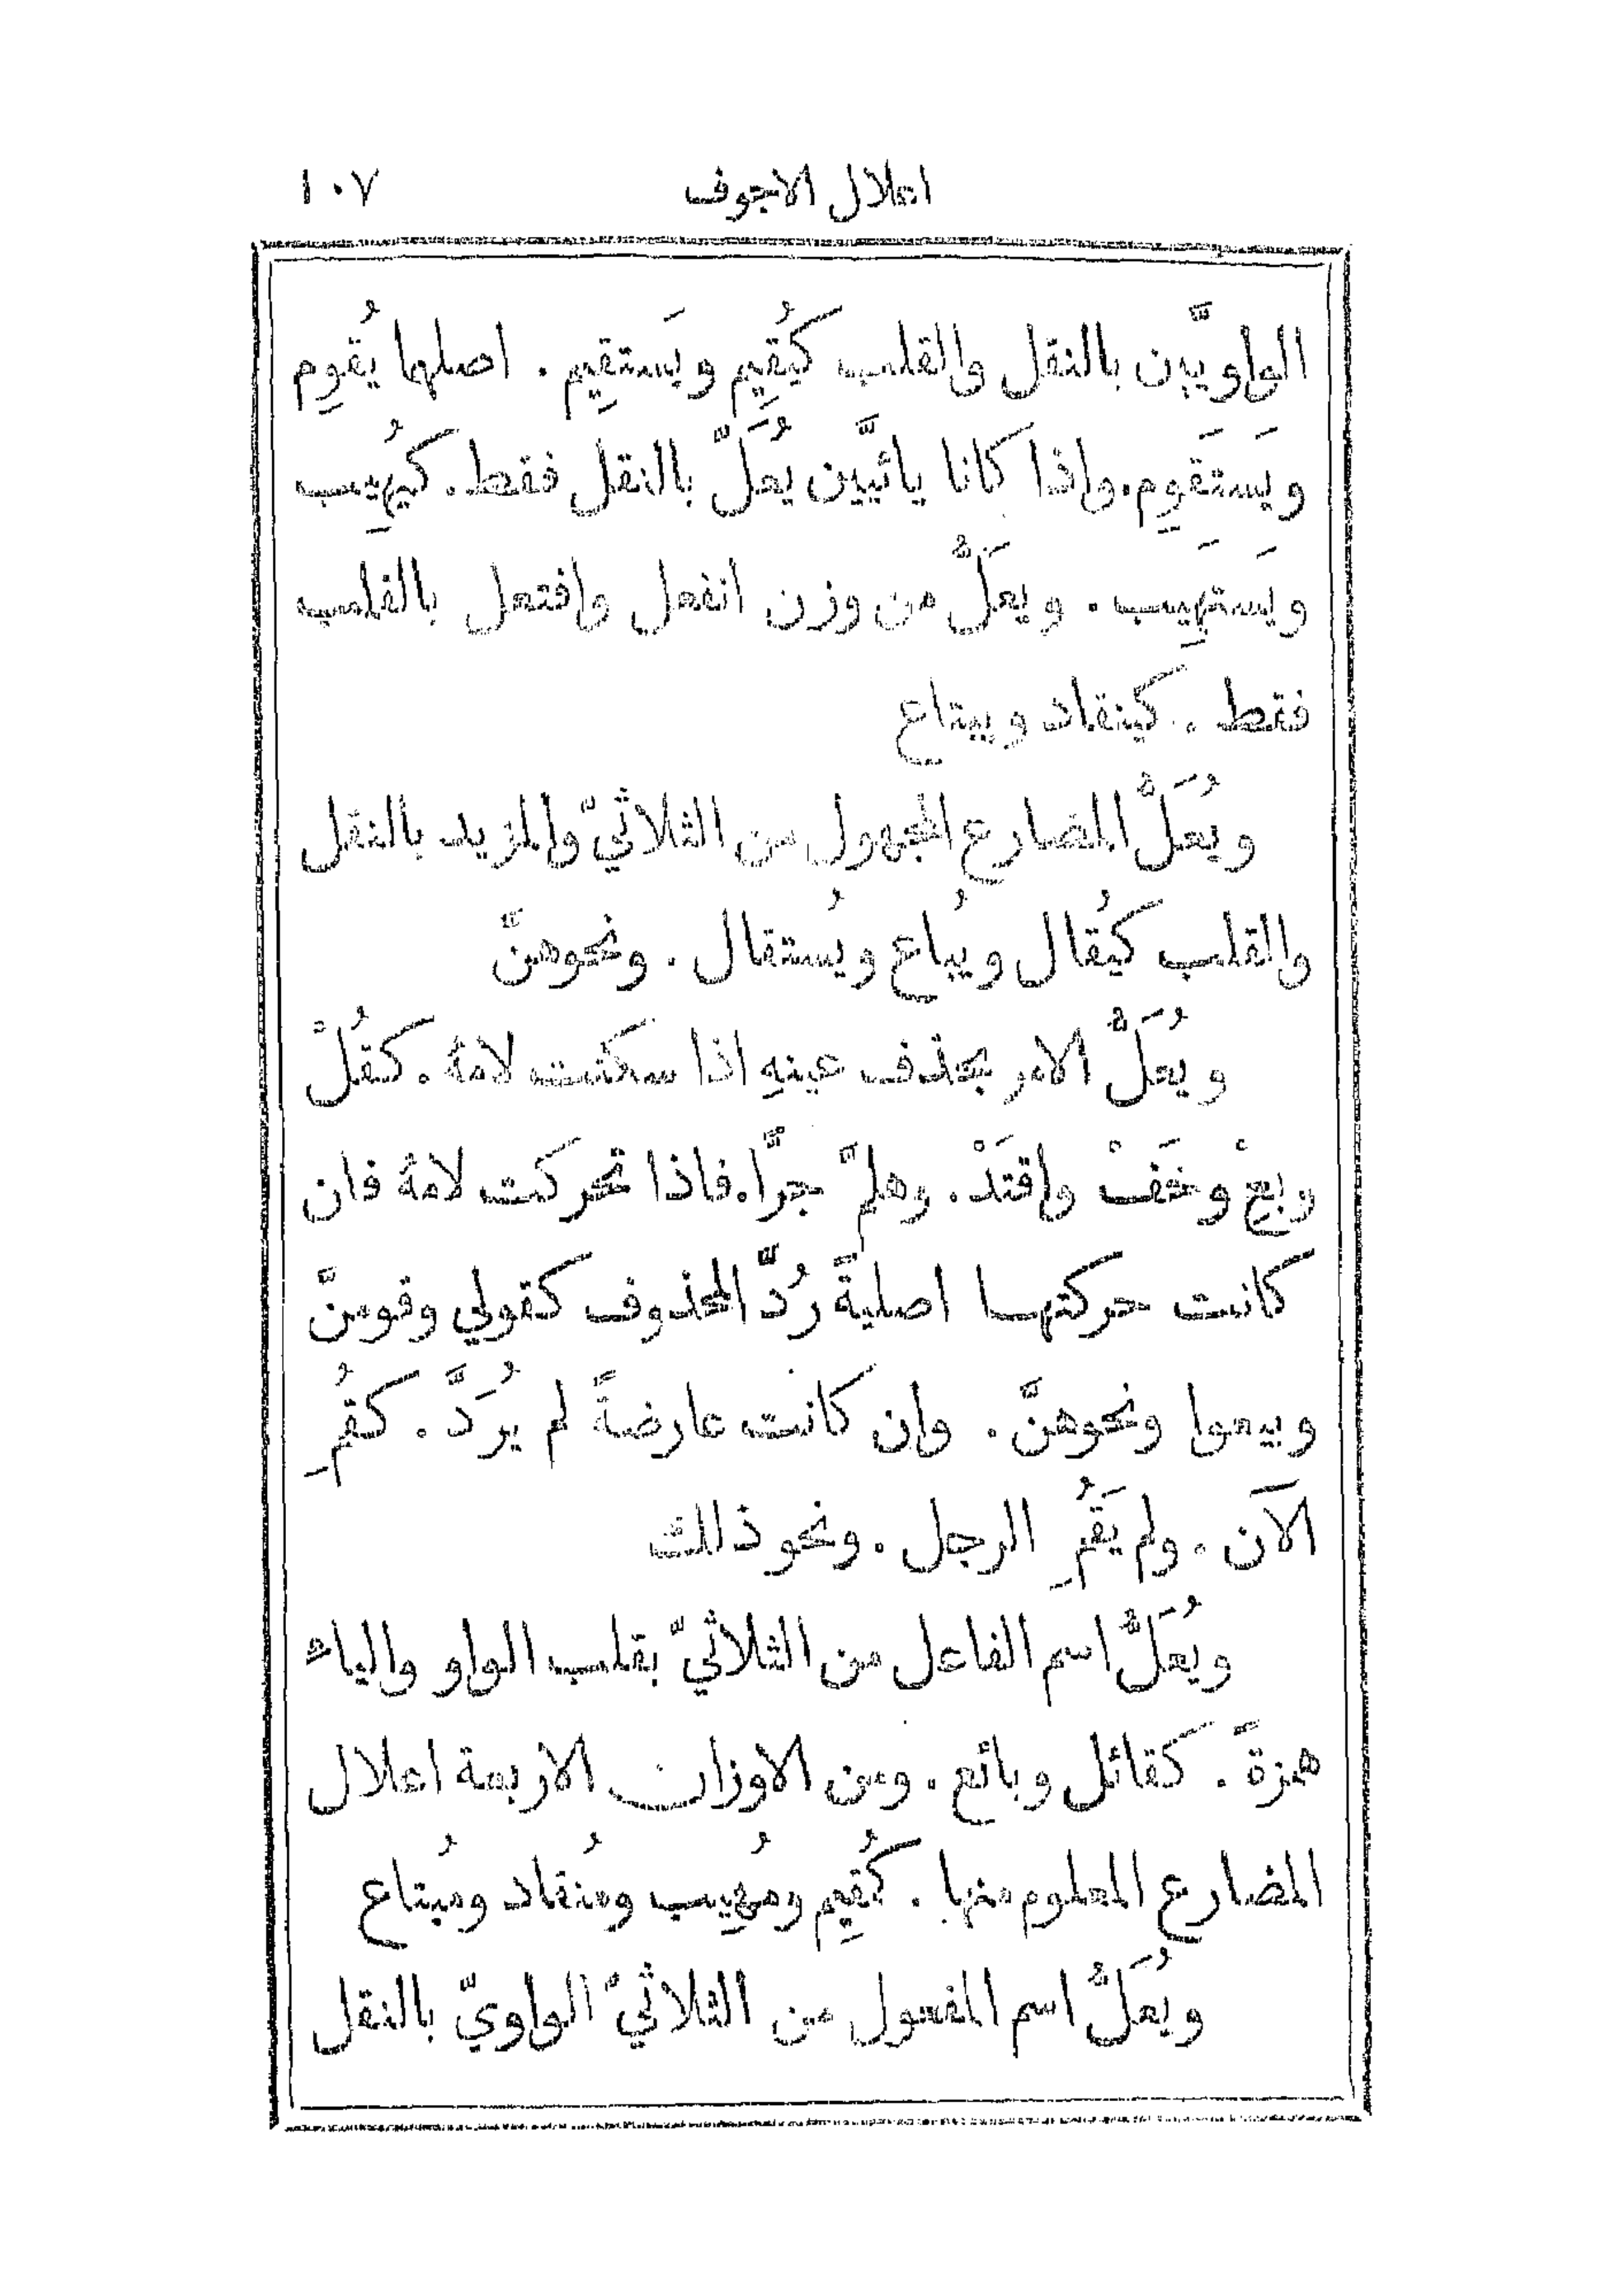 اعلال الاجوف ١٠٧
الواويَّين بالنقل والقلب كيُقِيم ويَستقِيم. اصلها يُقوِم
ويَستَقوِم. واذا كانا يائيَّين يُعَلّ بالنقل فقط. كيُهِيب
ويَستَهِيب. ويعَلُّ من وزن انفعل وافتعل بالقلب
فقط. كينقاد ويبتاع
ويُعَلُّ المضارع المجهول من الثلاثيّ والمزيد بالنقل
والقلب كيُقال ويُباع ويُستقال. ونحوهنَّ
ويُعَلُّ الامر بحذف عينهِ اذا سكنت لامهُ. كقُلْ
وبِعْ وخَفْ واقتَدْ. وهلمَّ جرًّا. فاذا تحركت لامهُ فان
كانت حركتها اصليةً رُدَّ المحذوف كقولي وقومنَّ
وبيعوا ونحوهنَّ. وان كانت عارضةً لم يُرَدَّ. كقُمِ
الآن. ولم يَقُمِ الرجل. ونحو ذلك
ويُعَلُّ اسم الفاعل من الثلاثيّ بقلب الواو والياء
همزةً. كقائل وبائع. ومن الاوزان الاربعة اعلال
المضارع المعلوم منها. كمُقِيم ومُهِيب ومُنقاد ومُبتاع
ويُعَلُّ اسم المفعول من الثلاثيّ الواويّ بالنقل